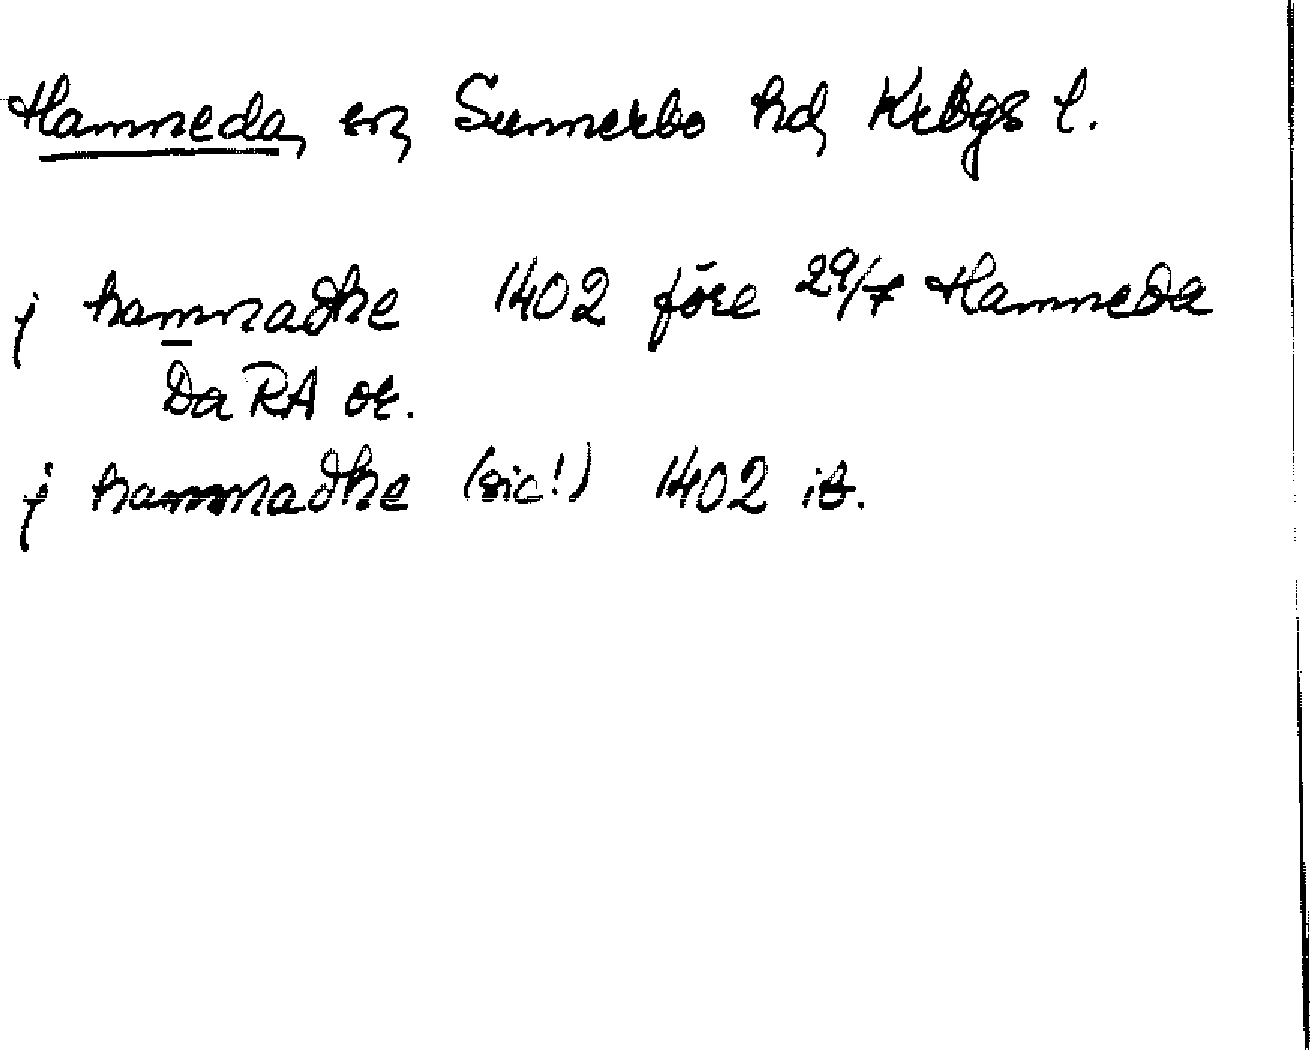 Hamneda, sn, Sunnerbo hd, KrBgs l.
j hamnadhe 1402 före 29/7 Hamneda
Da RA or.
j hammadhe (sic!) 1402 ib.